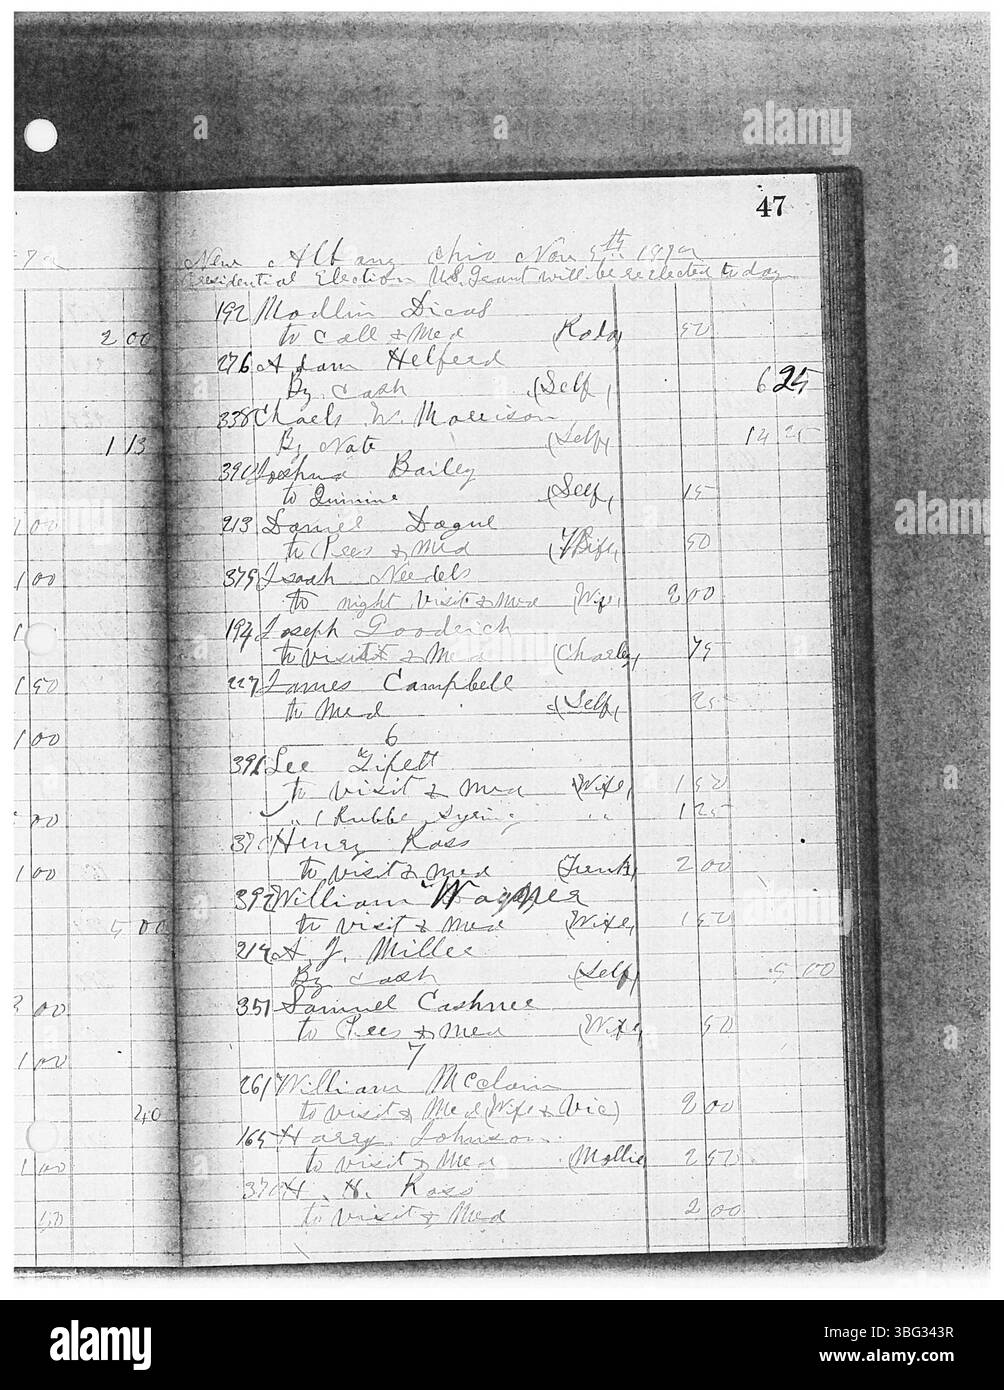 47
New Albany Ohio Nov 5th 1872
Presidential Election U.S. Grant will be reelected to day
192 Madlin Dicas
to Call & Med (Roda) 50
2 00
276 Adam Helferd
By Cash (Self) 6 25
338 Charls W. Morrison
By Note (Self) 14 25
1 13
390 Joshua Bailey
to Quinine (Self) 15
213 Daniel Dague
1 00
to Pres & Med (Wife) 50
375 Isaah Needels
1 00
to night visit & Med (Wife) 2 00
194 Joseph Goodrich
to visit & Med (Charley) 75
227 James Campbell
1 50
to Med (Self) 25
6
1 00
391 Lee Tipett
to visit & Med (Wife) 1 50
" 1 Rubbe Syring " 1 25
00
370 Henry Ross
to visit & Med (Frank) 2 00
1 00
392 William Wagner
to visit & Med (Wife) 1 50
5 00
214 A. J. Miller
By Cash (Self) 5 00
351 Samuel Cashner
3 00
to Pres & Med (Wife) 50
7
1 00
261 William McClain
to visit & Med (Wife & Vic) 2 00
40
165 Harry Johnson
to visit & Med (Mollie 2 50
1 00
370 H. H. Ross
to visit & Med 2 00
50
alamy
Image ID: 3BG343R
www.alamy.com